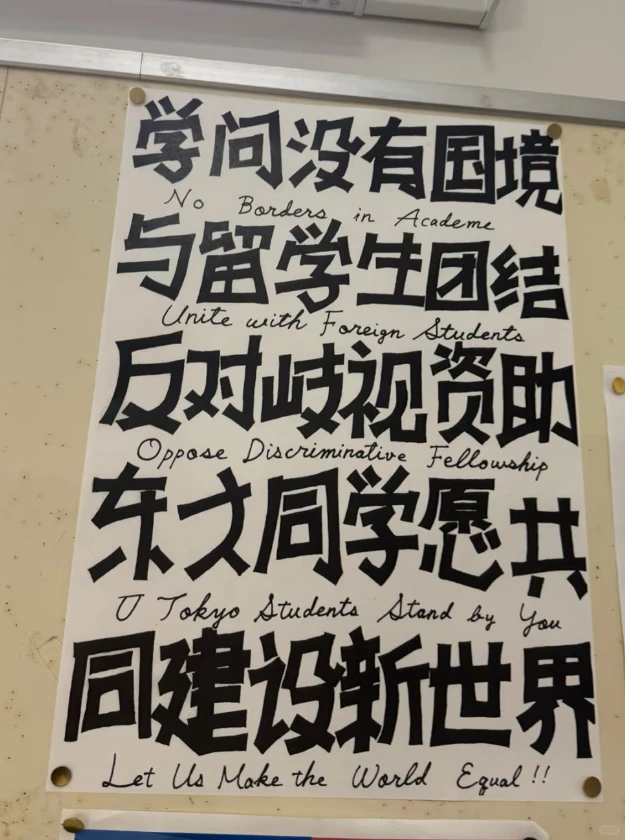 学问没有国境
No Borders in Academe
与留学生团结
Unite with Foreign Students
反对歧视资助
Oppose Discriminative Fellowship
东大同学愿共
U Tokyo Students Stand by You
同建设新世界
Let Us Make the World Equal!!